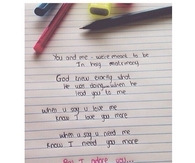 You and me - we're meant to be
In holy matrimony
God knew exactly what
He was doing when he
lead you to me
when u say u love me
know I love you more
when u say u need me
Know I need you more
Boy I adore you...